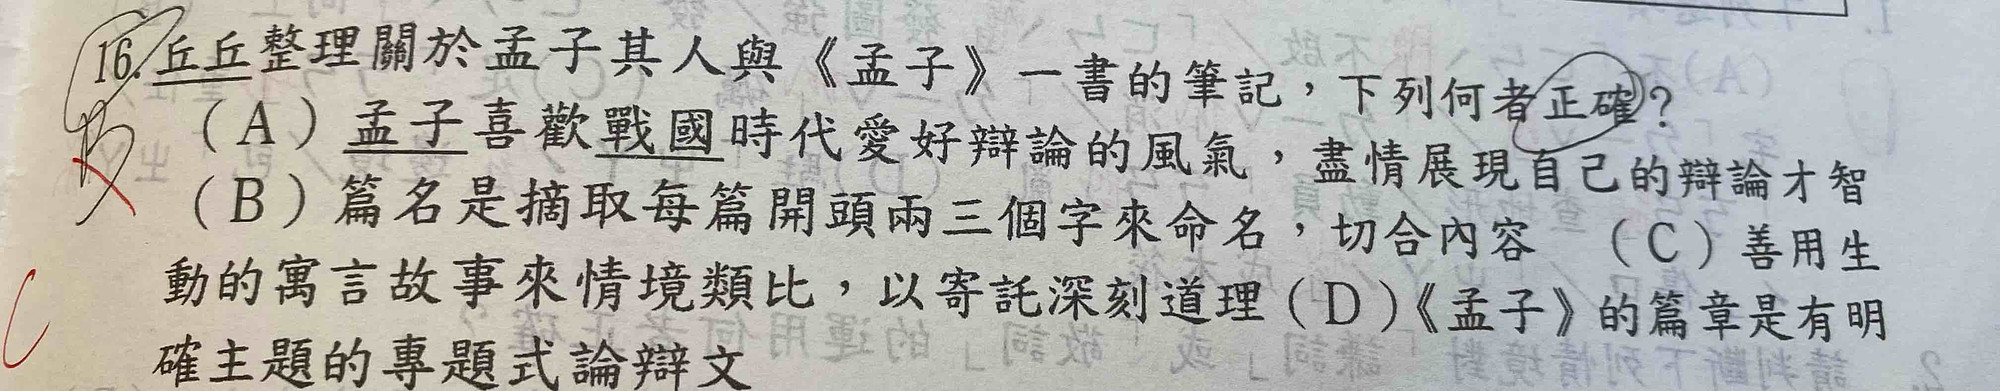 16.丘丘整理關於孟子其人與《孟子》一書的筆記，下列何者正確？
（A）孟子喜歡戰國時代愛好辯論的風氣，盡情展現自己的辯論才智
B
（B）篇名是摘取每篇開頭兩三個字來命名，切合內容　（C）善用生
動的寓言故事來情境類比，以寄託深刻道理（D）《孟子》的篇章是有明
C
確主題的專題式論辯文